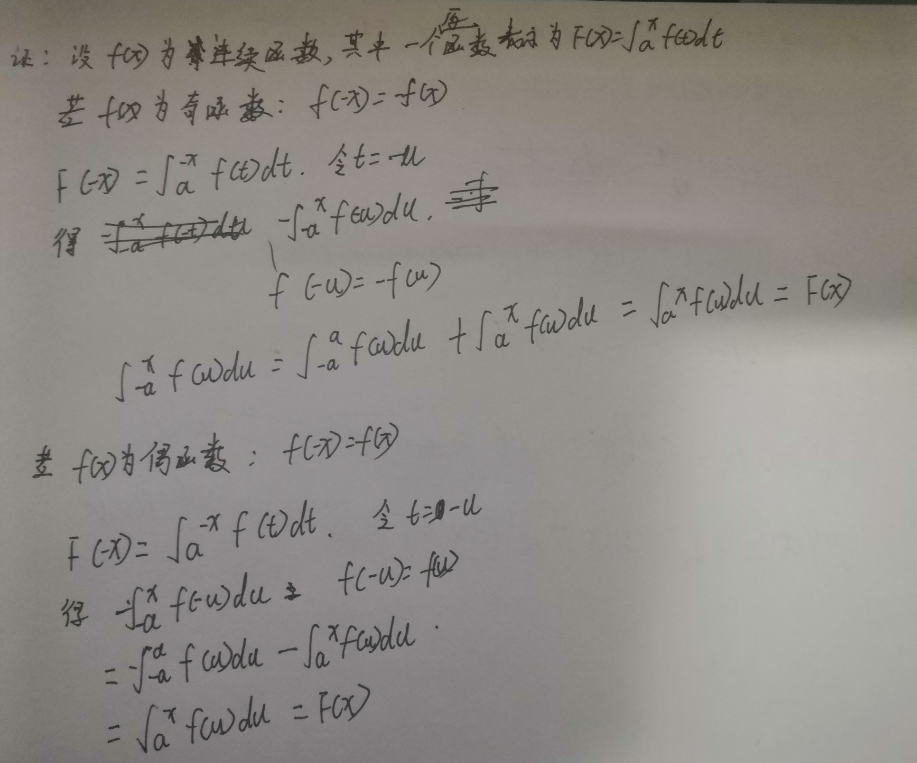 证：设 f(x) 为连续函数，其中一个原函数表示为 F(x)=∫ₐˣ f(t)dt
若 f(x) 为奇函数：f(-x)=-f(x)
F(-x)=∫ₐ⁻ˣ f(t)dt. 令 t=-u
得 -∫₋ₐˣ f(-u)du.
f(-u)=-f(u)
∫₋ₐˣ f(u)du = ∫₋ₐᵃ f(u)du + ∫ₐˣ f(u)du = ∫ₐˣ f(u)du = F(x)
若 f(x)为偶函数：f(-x)=f(x)
F(-x)=∫ₐ⁻ˣ f(t)dt. 令 t=-u
得 -∫₋ₐˣ f(-u)du f(-u)=f(u)
=-∫₋ₐᵃ f(u)du -∫ₐˣ f(u)du.
=∫ₐˣ f(u)du = F(x)